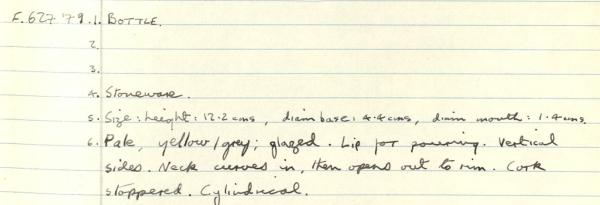 F.627'79.1. BOTTLE.
2.
3.
4. Stoneware.
5. Size: height: 12.2 cms, diam base: 4.4cms, diam mouth: 1.4cms.
6. Pale, yellow/grey; glazed. Lip for pouring. Vertical
sides. Neck curves in, then opens out to rim. Cork
stoppered. Cylindrical.